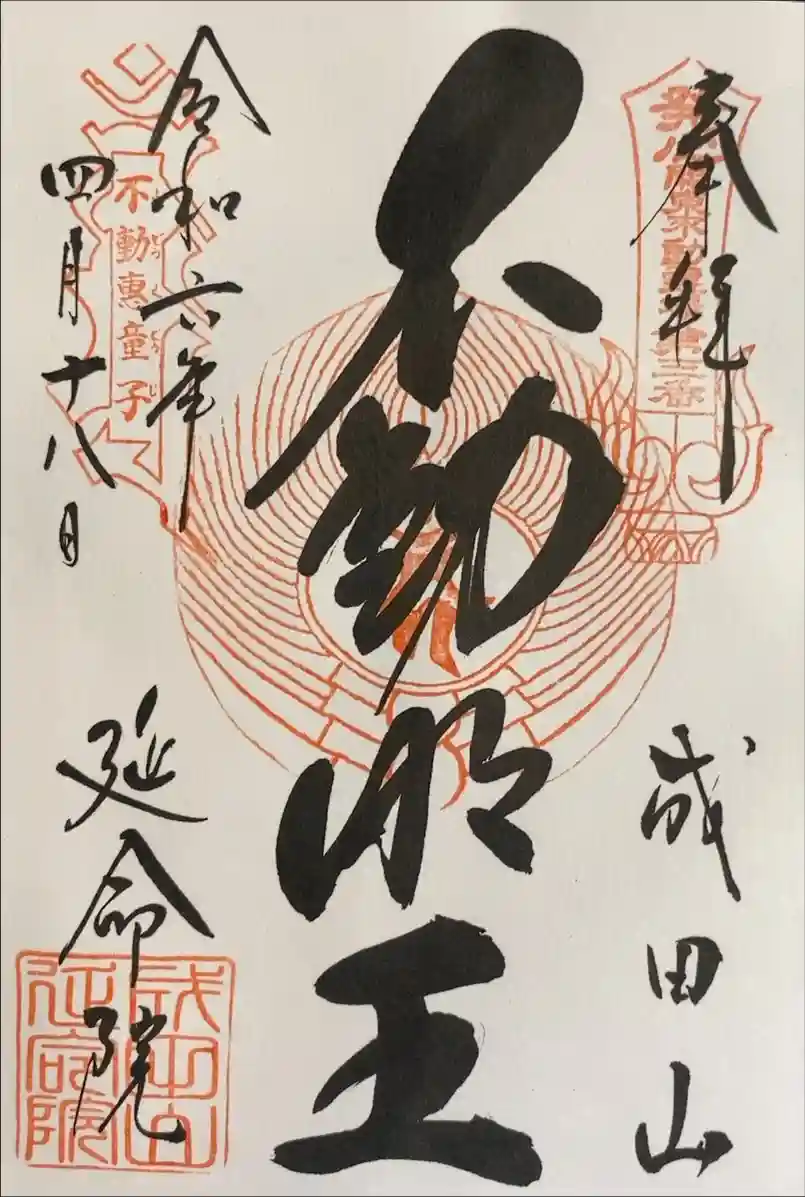 奉拝
成田山
不動明王
令和六年
四月十八日
延命院
第三番
不動惠童子
成田山
延命院